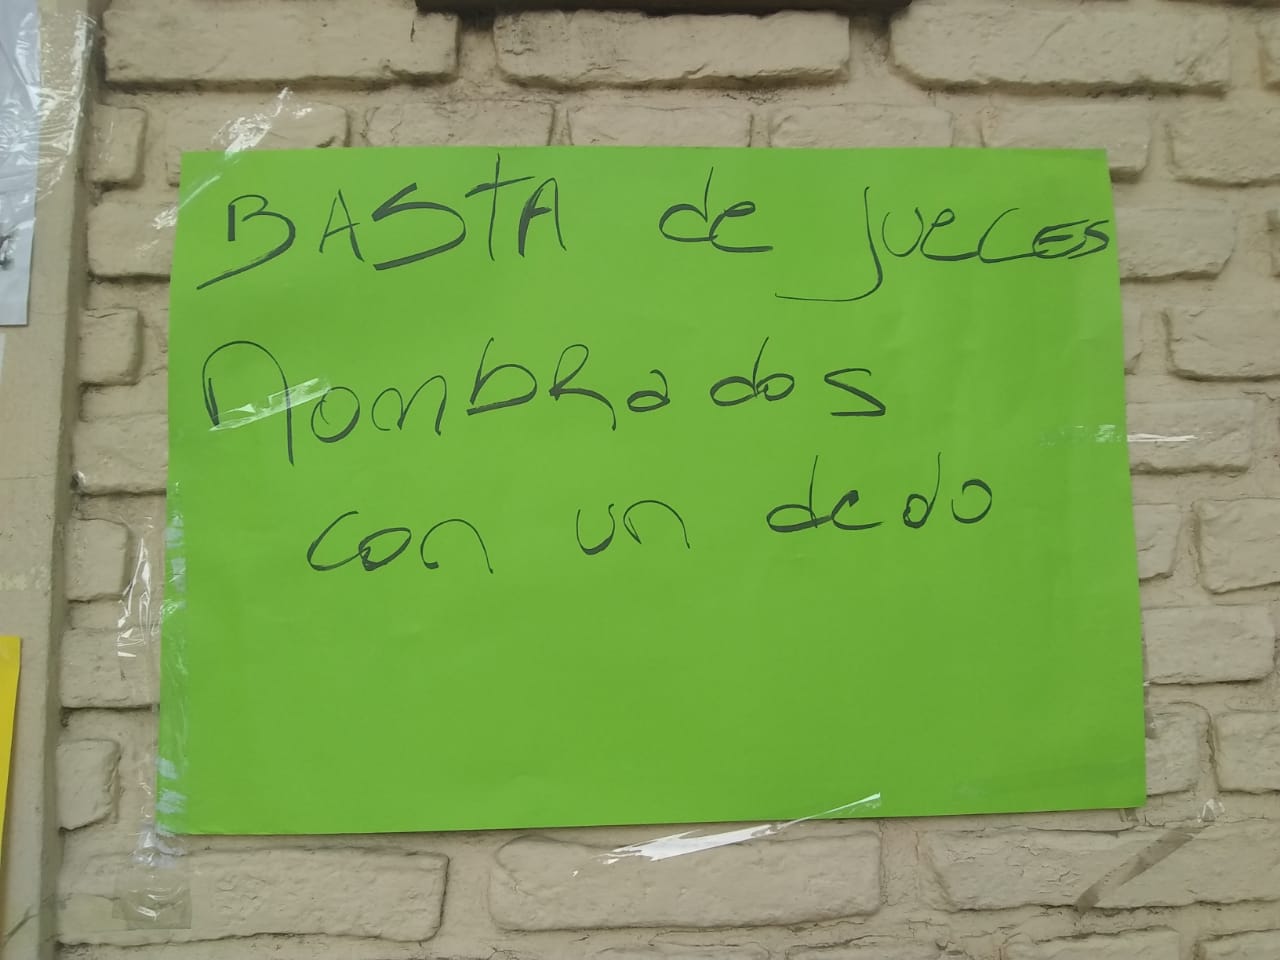 BASTA de jueces
nombrados
con un dedo